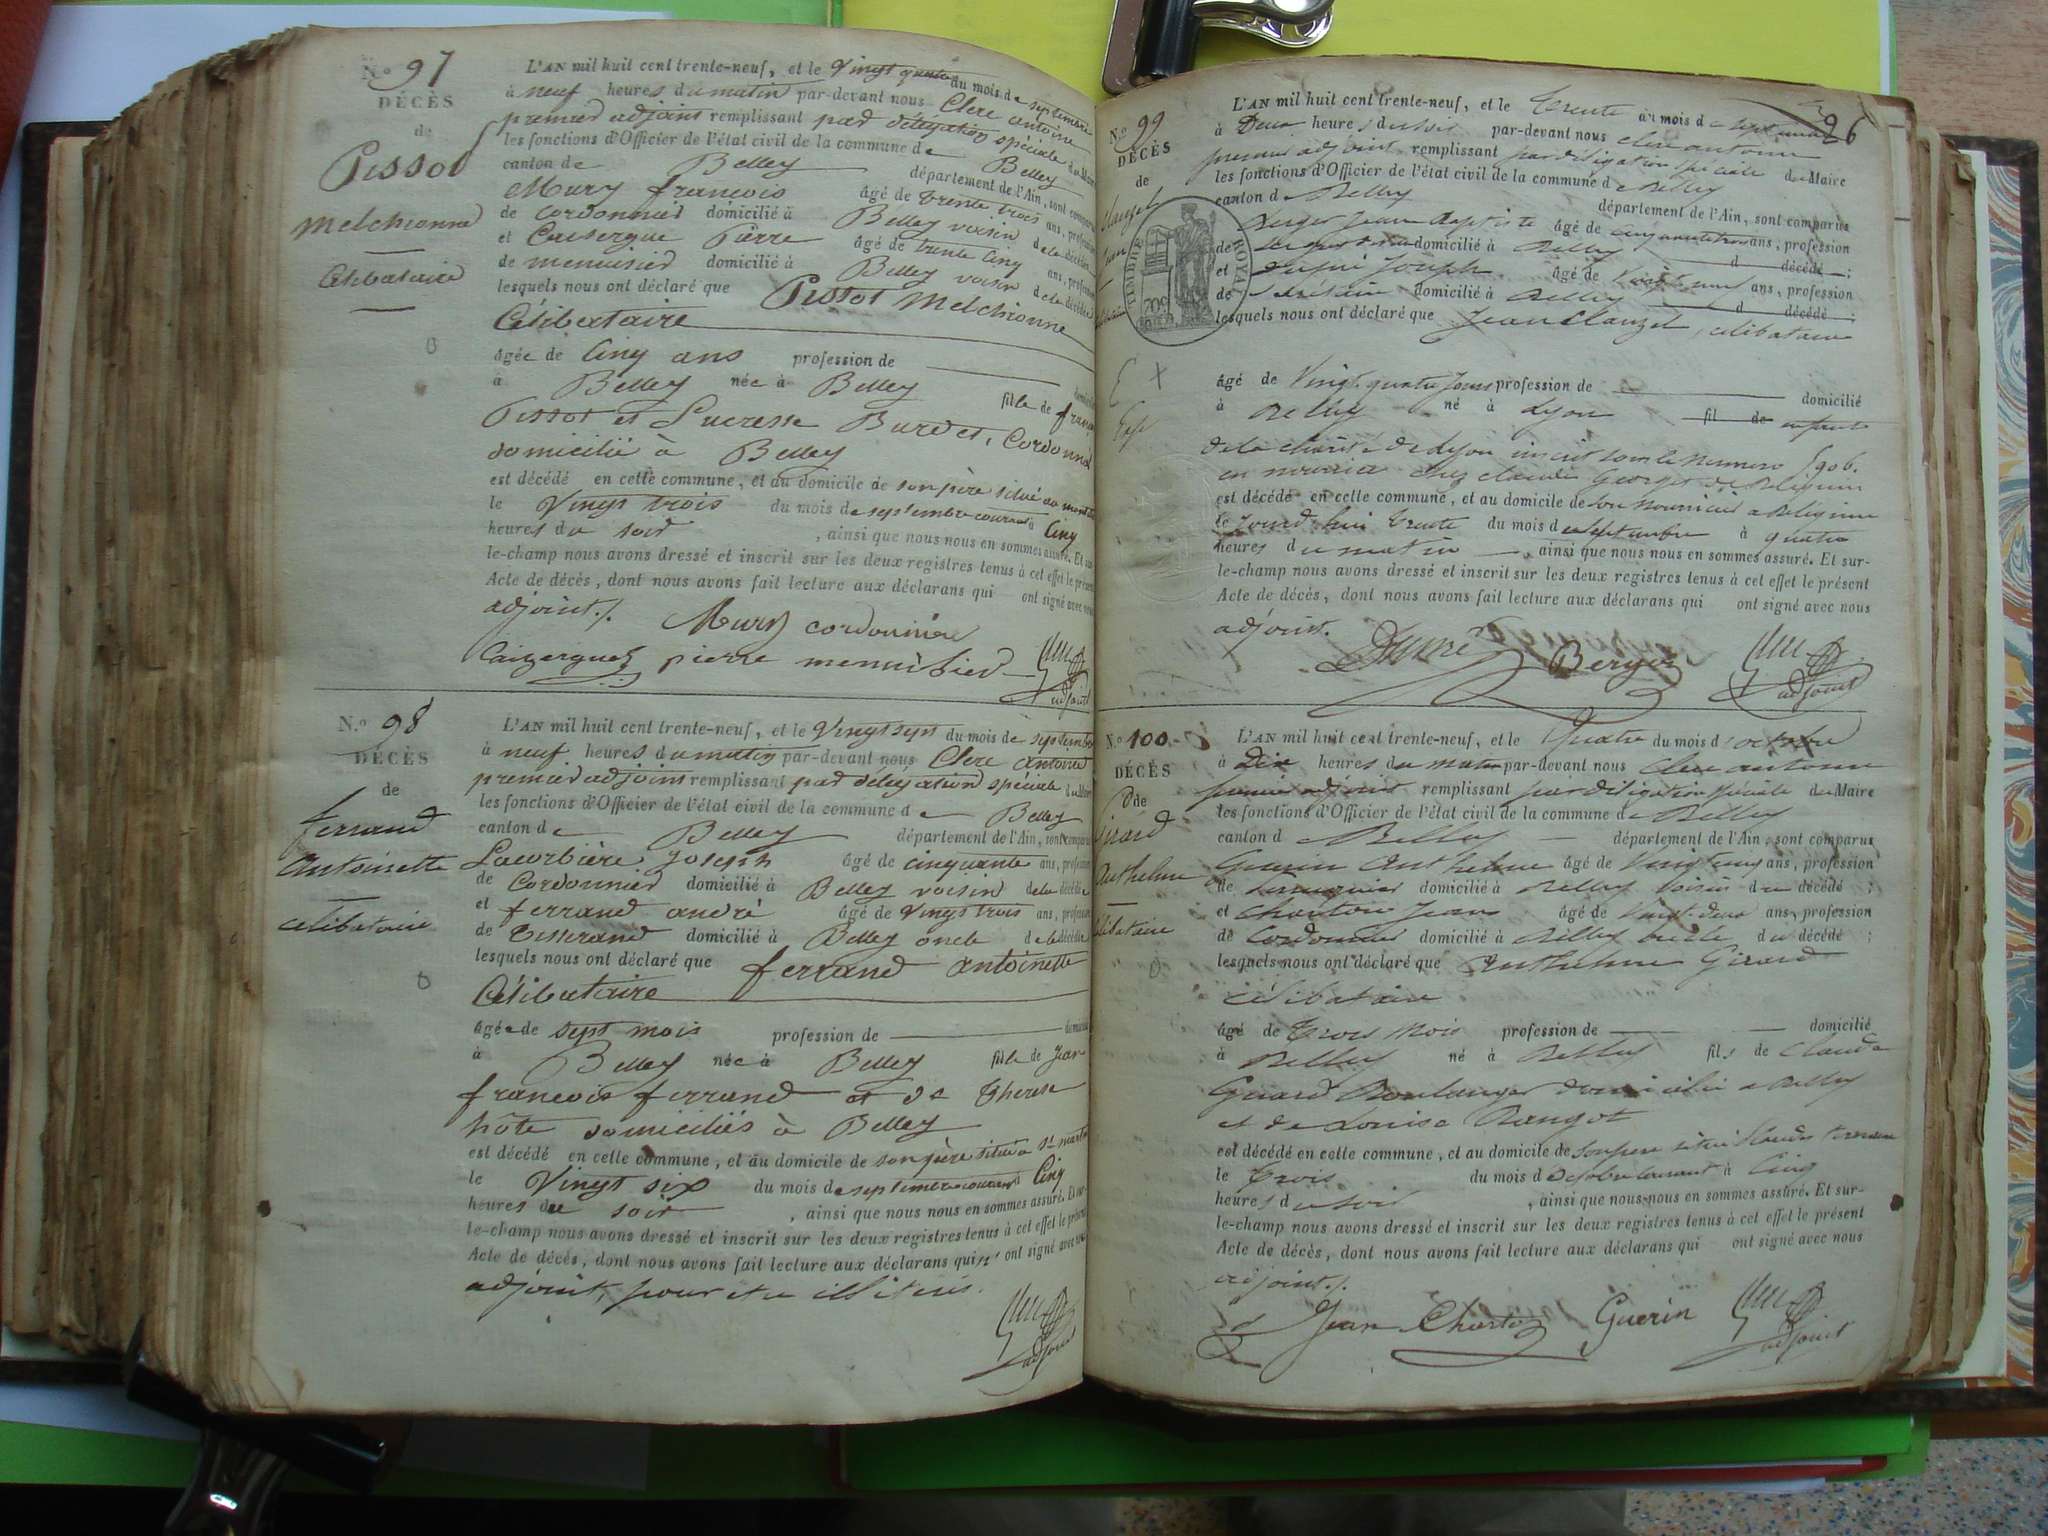 N.o 97
DÉCÈS
de
Pissot
Melchionne
Célibataire
L'AN mil huit cent trente-neuf, et le Vingt quatre du mois de septembre
à neuf heures du matin par-devant nous Clerc antoine
premier adjoint remplissant par délégation spéciale du Maire
les fonctions d'Officier de l'état civil de la commune de Belley
canton de Belley département de l'Ain, sont comparus
Mury françois âgé de trente trois ans, profession
de Cordonnier domicilié à Belley voisin de la décédée
et Caisergue Pierre âgé de trente cinq ans, profession
de menuisier domicilié à Belley voisin de la décédée
lesquels nous ont déclaré que Pissot Melchionne
Célibataire
âgée de Cinq ans profession de domicilié
à Belley née à Belley fille de françois
Pissot et Lucresse Burdet, Cordonnier
domicilié à Belley
est décédé en cette commune, et au domicile de son père situé au
le Vingt trois du mois de septembre courant à Cinq
heures du soir , ainsi que nous nous en sommes assuré. Et sur-
le-champ nous avons dressé et inscrit sur les deux registres tenus à cet effet le présent
Acte de décès, dont nous avons fait lecture aux déclarans qui ont signé avec nous
adjoint./.
Mury cordonnier
Caizergues pierre menuisier
adjoint
N.o 98
DÉCÈS
de
ferrand
Antoinette
célibataire
L'AN mil huit cent trente-neuf, et le Vingt sept du mois de septembre
à neuf heures du matin par-devant nous Clerc antoine
premier adjoint remplissant par délégation spéciale du Maire
les fonctions d'Officier de l'état civil de la commune de Belley
canton de Belley département de l'Ain, sont comparus
Lacorbière Joseph âgé de cinquante ans, profession
de Cordonnier domicilié à Belley voisin de la décédée
et ferrand andré âgé de Vingt trois ans, profession
de Tisserand domicilié à Belley oncle de la décédée
lesquels nous ont déclaré que ferrand antoinette
Célibataire
âgée de sept mois profession de domicilié
à Belley née à Belley fille de Jean
françois ferrand et de Therese
hôte domiciliés à Belley
est décédé en cette commune, et au domicile de son père situé à St martin
le Vingt six du mois de septembre courant à Cinq
heures du soir , ainsi que nous nous en sommes assuré. Et sur-
le-champ nous avons dressé et inscrit sur les deux registres tenus à cet effet le présent
Acte de décès, dont nous avons fait lecture aux déclarans qui n'ont signé avec nous
adjoint, pour être illitérés.
adjoint
26
N.o 99
DÉCÈS
de
Clauzel
Jean
TIMBRE ROYAL
70c
L'AN mil huit cent trente-neuf, et le Trente du mois de septembre
à Deux heures du soir par-devant nous clerc antoine
premier adjoint remplissant par délégation spéciale du Maire
les fonctions d'Officier de l'état civil de la commune de Belley
canton de Belley département de l'Ain, sont comparus
Berger Jean Baptiste âgé de cinquante trois ans, profession
de domicilié à Belley d décédé ;
et Dupué Joseph âgé de Vingt neuf ans, profession
de domicilié à Belley d décédé ;
lesquels nous ont déclaré que Jean Clauzel, célibataire
âgé de Vingt quatre Jours profession de domicilié
à Belley né à Lyon fil de enfant
de la charité de Lyon inscrit sous le numero 1906.
en nourrice chez claude Georges de Billignin
est décédé en cette commune, et au domicile de son nourricier a Billignin
le jourd'hui trente du mois de septembre à quatre
heures du matin , ainsi que nous nous en sommes assuré. Et sur-
le-champ nous avons dressé et inscrit sur les deux registres tenus à cet effet le présent
Acte de décès, dont nous avons fait lecture aux déclarans qui ont signé avec nous
adjoint.
Berger
adjoint
N.o 100
DÉCÈS
de
Girard
Anthelme
célibataire
L'AN mil huit cent trente-neuf, et le Quatre du mois d'octobre
à dix heures du matin par-devant nous clerc antoine
premier adjoint remplissant par délégation spéciale du Maire
les fonctions d'Officier de l'état civil de la commune de Belley
canton d Belley département de l'Ain, sont comparus
Guerin Anthelme âgé de Vingt cinq ans, profession
de domicilié à Belley voisin du décédé ;
et Charton Jean âgé de Vingt-deux ans, profession
de Cordonnier domicilié à Belley oncle du décédé ;
lesquels nous ont déclaré que Anthelme Girard
célibataire
âgé de Trois mois profession de domicilié
à Belley né à Belley fils de Claude
Girard Boulanger domicilié a Belley
et de Louise Rangot
est décédé en cette commune, et au domicile de son père situé
le Trois du mois d'octobre courant à Cinq
heures du soir , ainsi que nous nous en sommes assuré. Et sur-
le-champ nous avons dressé et inscrit sur les deux registres tenus à cet effet le présent
Acte de décès, dont nous avons fait lecture aux déclarans qui ont signé avec nous
adjoint./.
Jean Charton Guerin
adjoint